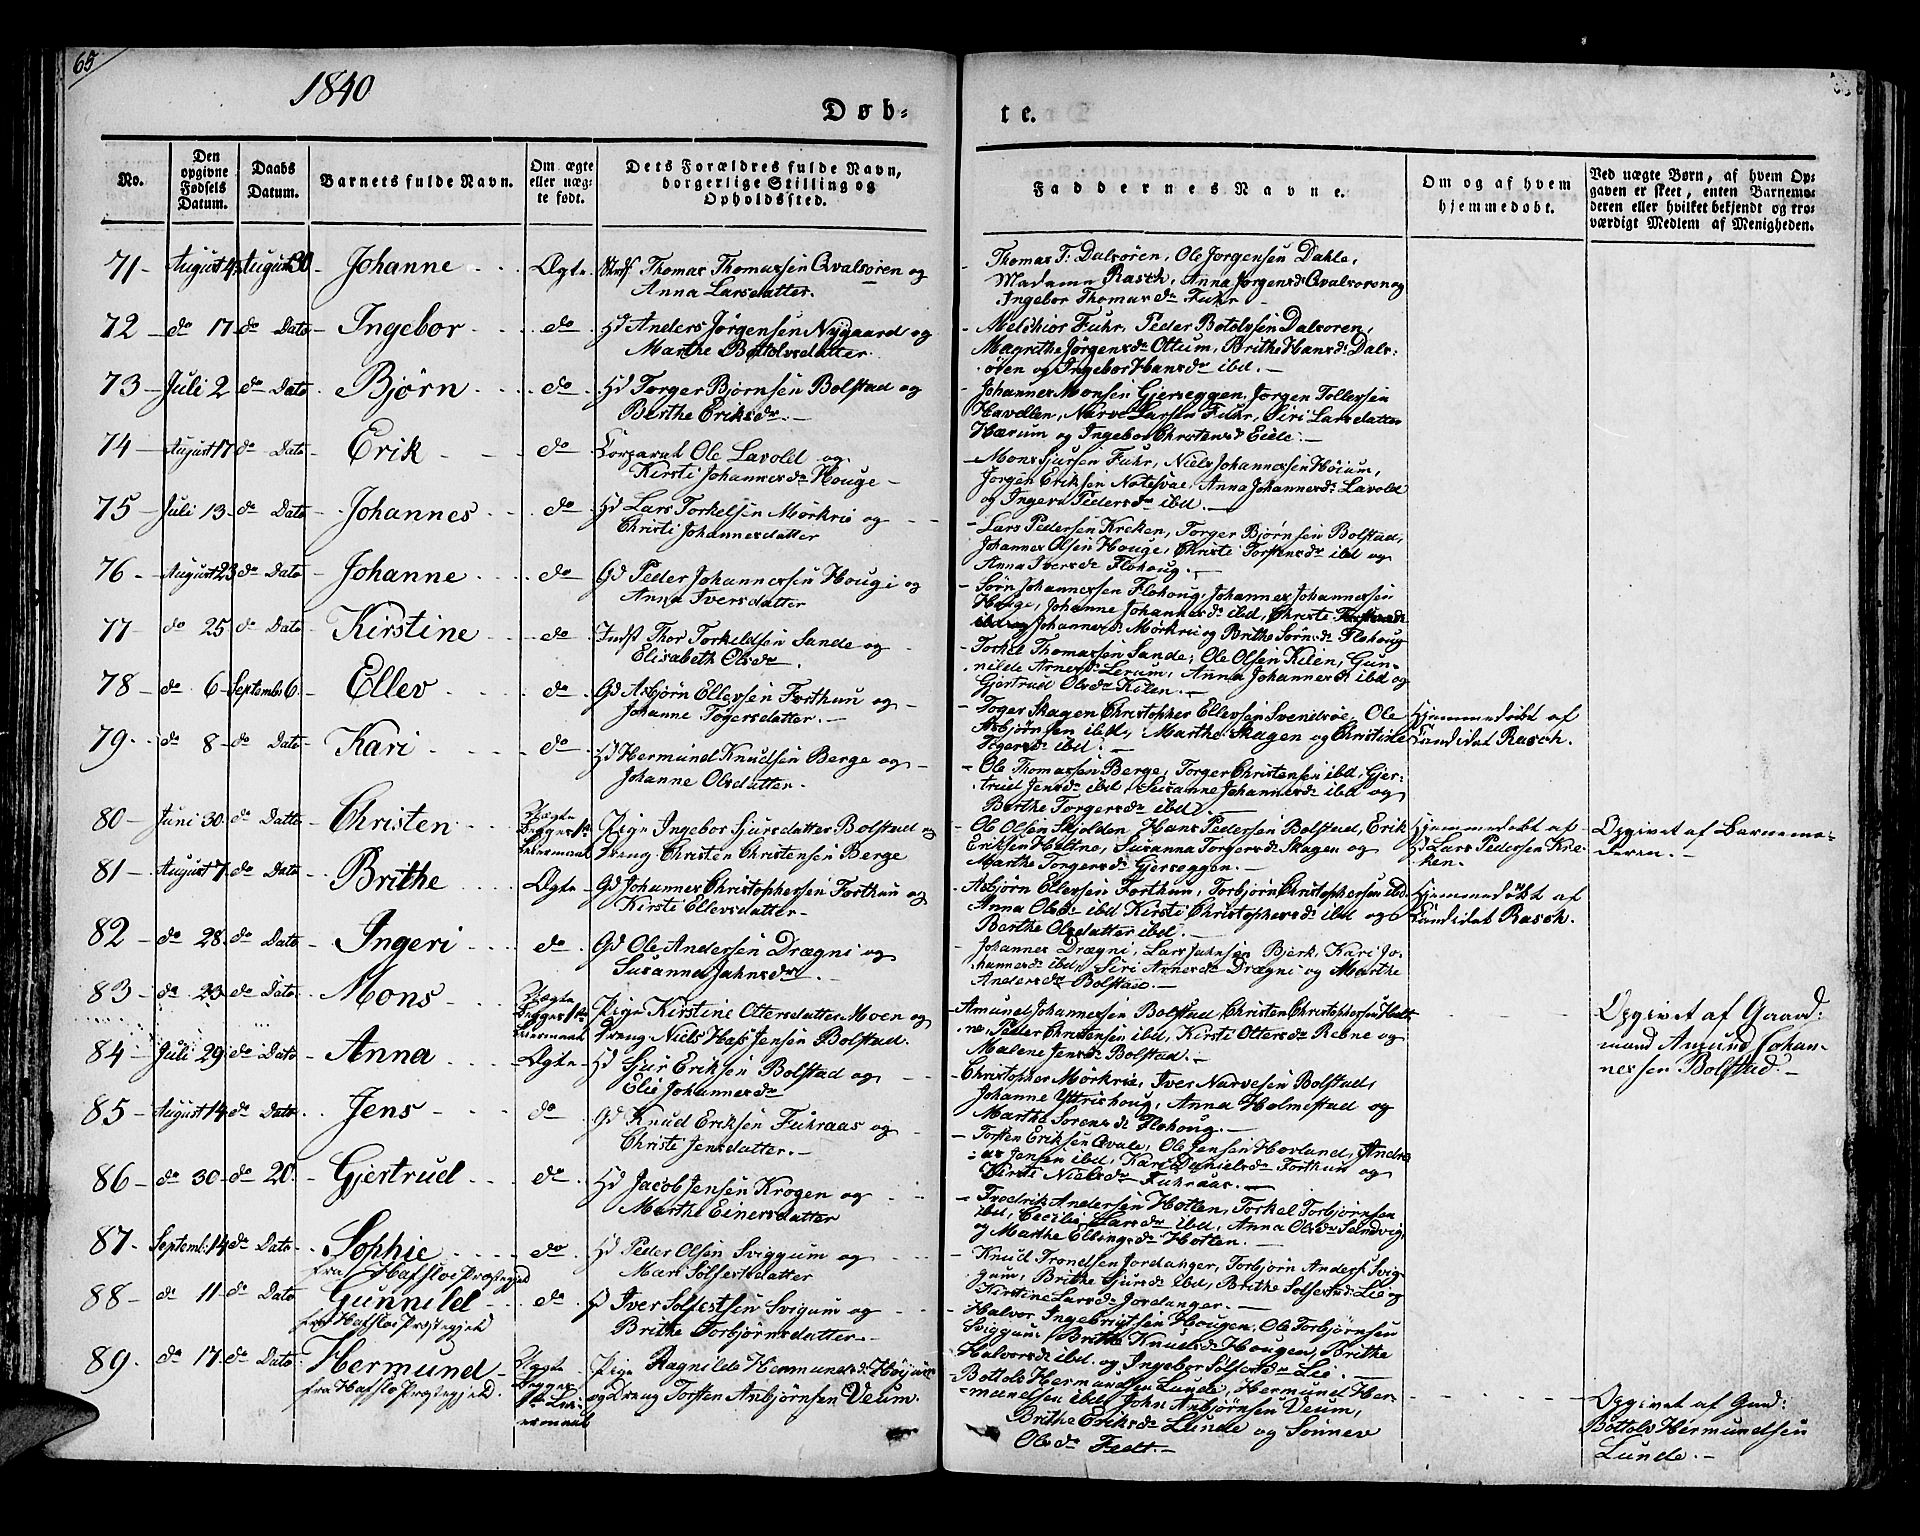 65
1840
Døb-
te.
No.
Den opgivne Fødsels Datum.
Daabs Datum.
Barnets fulde Navn.
Om ægte eller uæg- te født.
Dets Forældres fulde Navn, borgerlige Stilling og Opholdssted.
Faddernes Navne.
Om og af hvem hjemmedøbt.
Ved uægte Børn, af hvem Op- gaven er skeet, enten Barnemo- deren eller hvilket bekjendt og tro- værdigt Medlem af Menigheden.
71 - August 4 August 30 Johanne Ægte Thomas Thomassen Qvalsøren og
Anna Larsdatter.
Thomas T. Dalsøren, Ole Jørgensen Dahle,
Madame Rasch, Anna Jørgensdr Qvalsøren og
Ingebor Thomasdr Fuhr -
72 - do 17 do Dato Ingebor do Hd Anders Jørgensen Nygaard og
Marthe Bottolvsdatter.
Melchior Fuhr, Peder Botolvsen Dalsøren,
Magrithe Jørgensdr Ottum, Brithe Hansdr Dals-
øren og Ingebor Hansdr ibd. -
73 - Juli 2 do Dato Bjørn do Hd Torger Bjørnsen Bolstad og
Berthe Eriksdr. -
Johannes Monsen Gjerseggen, Jørgen Tollefsen
Havellen, Narve Larsen Fuhr, Siri Larsdatter
Hærum og Ingebor Christensdr Eide. -
74 - August 17 do Dato Erik do Corporal Ole Lavold og
Kirsti Johannesdr Houge -
Mons Sjursen Fuhr, Niels Johannessen Høium,
Jørgen Eriksen Notesvae, Anna Johannesdr Lavold
og Ingeri Pedersdr ibd. -
75 - Juli 13 do Dato Johannes do Hd Lars Torkelsen Mørkrie og
Christi Johannesdatter
Lars Pedersen Kreken, Torger Bjørnsen Bolstad,
Johannes Olsen Houge, Christi Torstensdr ibd og
Anna Iversdr Flohoug. -
76 - August 23 do Dato Johanne do Gd Peder Johannessen Hougi og
Anna Iversdatter
Sørn Johannessen Flohoug, Johannes Johannessen
Houge, Johanne Johannesdr ibd, Christi
ibd og Johannesdr Mørkri og Brithe Sørnsdr Flohoug
77 - do 25 do Dato Kirstine do Indst Thor Torkeldsen Sande og
Elisabeth Olsdr.
Torkel Thomassen Sande, Ole Olsen Kilen, Gun-
nilde Arnesdr Lerum, Anna Johannesdr ibd og
Gjertrud Olsdr Kilen. -
78 - do 6 Septembr 6 Ellev do Gd Asbjørn Ellevsen Forthun og
Johanne Togersdatter. -
Toger Skagen Christopher Ellevsen Svendsøe, Ole
Asbjørnsen ibd, Marthe Skagen og Christine
Togersdr ibd. -
Hjemmedøbt af
Candidat Rasch.
79 - do 8 do Dato Kari do Hd Hermund Knudsen Berge og
Johanne Olsdatter. -
Ole Thomassen Berge, Torger Christensen ibd, Gjer-
trud Jensdr ibd, Susanne Johannesdr ibd og
Berthe Torgersdr ibd. -
80 - Juni 30 do Datte Christen Uægte Begges 1ste Leiermaal Pige Ingebor Sjursdatter Bolstad og
Dreng Christen Christensen Berge
Ole Olsen Skjolden, Hans Pedersen Bolstad, Erik
Eriksen Heltne, Susanna Torgersdr Skagen og
Marthe Torgersdr Gjerseggen. -
Hjemmedøbt af
Hd Lars Pedersen Kre-
ken. -
Opgivet af Barnemo-
deren. -
81 - August 7 do Dato Brithe Ægte Gd Johannes Christophersen Forthun og
Kirsti Ellevsdatter -
Asbjørn Ellevsen Forthun, Torbjørn Christophersen ibd
Anna Olsdr ibd Kirsti Christophersdr ibd og
Berthe Olsdatter ibd. -
Hjemmedøbt af
Candidat Rasch.
82 - do 28 do Dato Ingeri do Gd Ole Andersen Drægni og
Susanna Jahnsdr. -
Johannes Drægni, Lars Jahnsen Bjerk, Kari Jo-
hannesdr ibd, Siri Arnesdr Drægni og Marthe
Andersdr Bolstad. -
83 - do 23 do Dato Mons Uægte Begges 1ste Leiermaal Pige Kirstine Ottersdatter Moen og
Dreng Niels Hass Jensen Bolstad.
Amund Johannessen Bolstad, Christen Christophersen Helt-
ne, Peder Christensen ibd, Kirsti Ottersdr Rebne og
Malene Jensdr Bolstad. -
Opgivet af Gaard-
mand Amund Johan-
nessen Bolstad. -
84 - Juli 29 do Dato Anna Ægte Hd Sjur Eriksen Bolstad og
Elie Johannesdr
Christopher Mørkrie, Iver Narvesen Bolstad,
Johanne Yttrishoug, Anna Holmestad og
Marthe Sørensdr Flohoug. -
85 - August 14 do Dato Jens do Gd Knud Eriksen Fuhraas og
Christi Jensdatter. -
Torsten Eriksen Qvale, Ole Jensen Hovland, Andre-
as Jensen ibd, Kari Danielsdr Forthun og
Kirsti Nielsdr Fuhraas. -
86 - do 30 do 20 Gjertrud do Hd Jacob Jensen Krogen og
Marthe Einersdatter
Fredrik Andersen Hotlen, Torkel Torbjørnsen
ibd, Cecilie Larsdr ibd, Anna Olsdr Sandvig
og Marthe Ellingsdr Hotlen. -
87 - Septemb: 14 do Dato Sophie do Hd Peder Olsen Sviggum og
fra Hafslo Præstegjeld
Mari Solfestsdatter
Knud Trondsen Jordanger, Torbjørn Anders: Svig-
gum, Brithe Sjursdr ibd, Brithe Solfestsdr Lie og
Kirstine Larsdr Jordanger. -
88 - do 11 do Dato Gunnild do Hd Iver Solfestsen Svigum og
fra Hafslo Præstegjeld
Brithe Torbjørnsdatter. -
Halvor Ingebrigtsen Hougen, Ole Torbjørnsen
Sviggum, Brithe Knudsdr Hougen, Brithe
Halvorsdr ibd. og Ingebor Solfestsdr Lie. -
89 - do 17 do Dato Hermund Uægte Begges 1ste Leiermaal Pige Ragnilde Hermundsdr Høyum
fra Hafslo Præstegjeld.
og Dreng Torsten Anbjørnsen Veum.
Bottolv Hermundsen Lunde, Hermund Her-
mundsen ibd, John Anbjørnsen Veum,
Brithe Eriksdr Lunde og Sønnev
Olsdr Fedt. -
Opgivet af Gmd:
Bottolv Hermundsen
Lunde. -